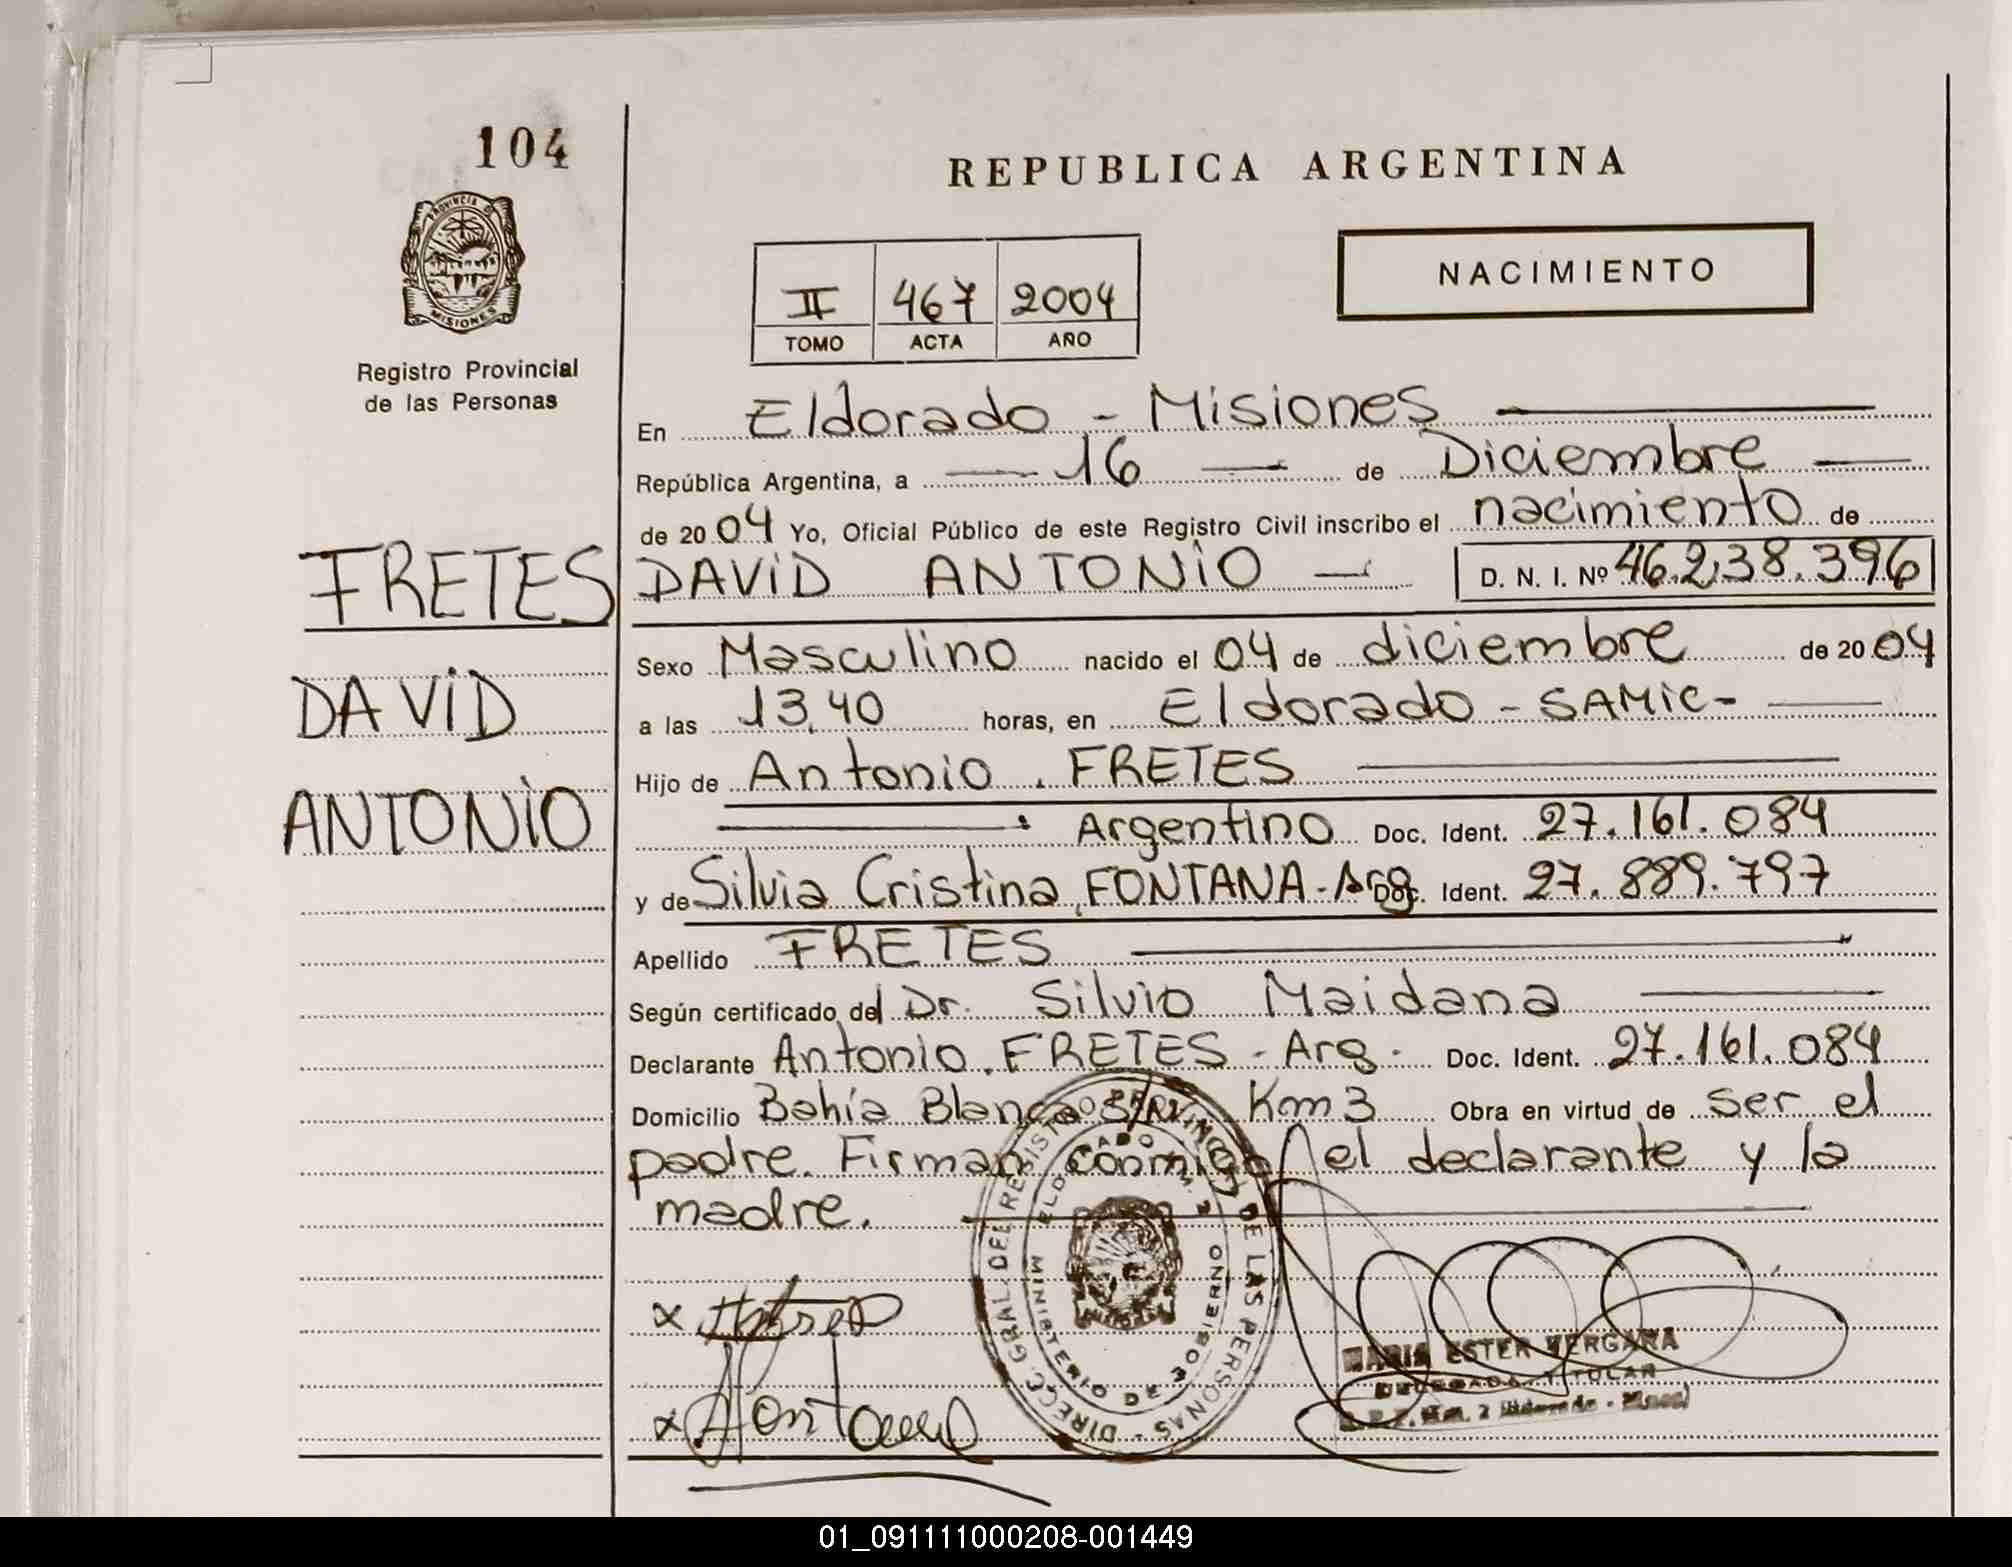 104
REPUBLICA ARGENTINA
PROVINCIA DE
MISIONES
NACIMIENTO
II 467 2004
TOMO ACTA AÑO
Registro Provincial
de las Personas
En Eldorado - Misiones
República Argentina, a 16 de Diciembre
de 2004 Yo, Oficial Público de este Registro Civil inscribo el nacimiento de
FRETES DAVID ANTONIO D. N. I. Nº 46.238.396
Sexo Masculino nacido el 04 de diciembre de 2004
DAVID
a las 13.40 horas, en Eldorado - SAMIC -
Hijo de Antonio. FRETES
ANTONIO
Argentino Doc. Ident. 27.161.084
y de Silvia Cristina, FONTANA - Arg. Doc. Ident. 27.889.797
Apellido FRETES
Según certificado del Dr. Silvio Maidana
Declarante Antonio. FRETES - Arg - Doc. Ident. 27.161.084
Domicilio Bahía Blanca S/N Km 3 Obra en virtud de ser el
padre. Firman conmigo el declarante y la
madre.
DIRECC. GRAL. DEL REGISTRO PROVINCIAL DE LAS PERSONAS
ELDORADO
MINISTERIO DE GOBIERNO
x
x Fontana
MARIA ESTER VERGARA
DELEGADA TITULAR
01_091111000208-001449